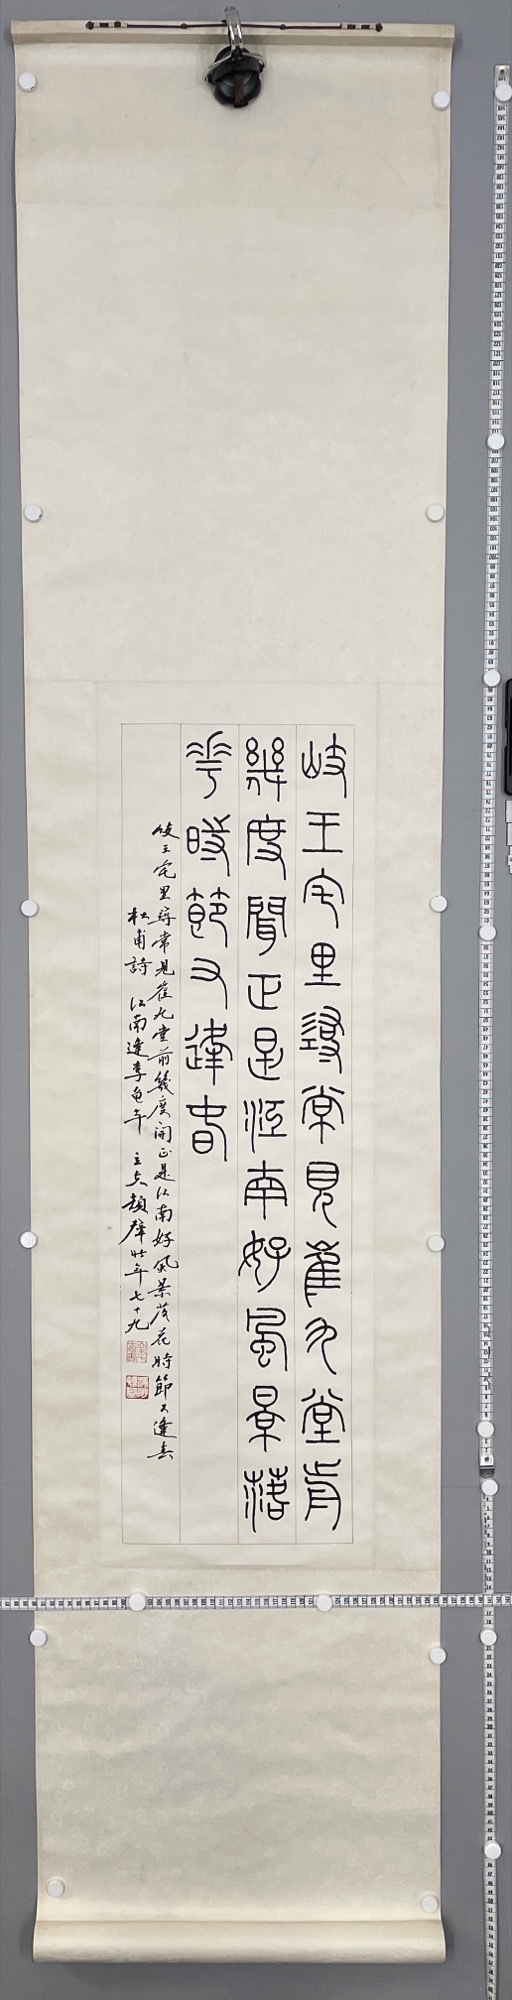 岐王宅里尋常見崔九堂前
幾度聞正是江南好風景落
花時節又逢春
岐王宅里尋常見崔九堂前幾度聞正是江南好風景落花時節又逢春
杜甫詩 江南逢李龜年 年七十九